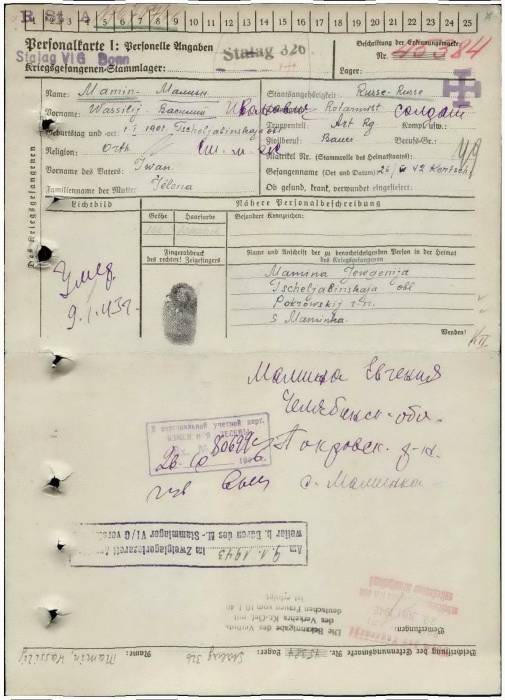 5 6 7 8 9 10 11 12 13 14 15 16 17 18 19 20 21 22 23 24 25
Personalkarte I: Personelle Angaben
Stalag 326
Stalag VI G Bonn
Kriegsgefangenen-Stammlager:
Beschriftung der Erkennungsmarke
Nr.
Lager:
Name: Mamin - Мамин
Staatsangehörigkeit: Russe-Russe
Vorname: Wassilij - Василий Иванович
солдат
Geburtstag und -ort: 1901 Tscheljabinskaja obl
Truppenteil: Art Rg Komp. usw.:
Religion: Orth
Zivilberuf: Bauer Berufs-Gr.:
Vorname des Vaters: Iwan
Matrikel Nr. (Stammrolle des Heimatstaates):
Familienname der Mutter: Jelena
Gefangennahme (Ort und Datum): 42 Kertsch
Ob gesund, krank, verwundet eingeliefert:
Des Kriegsgefangenen
Lichtbild
Nähere Personalbeschreibung
Größe Haarfarbe
Besondere Kennzeichen:
Fingerabdruck
des rechten! Zeigefingers
Name und Anschrift der zu benachrichtigenden Person in der Heimat
des Kriegsgefangenen
Mamina Jewgenija
Tscheljabinskaja obl
Pokrowskij r.n.
s Maminka.
Wenden!
Умер
9.1.43г.
Мамина Евгения
Челябинск. обл.
Покровск. р-н.
с. Маминка
80699
Am 9.1.1943 im Zweiglagerlazarett
des M.-Stammlager VI/G
Die Bekanntgabe des Verbots
des Verkehrs Kr.-Gef. mit
deutschen Frauen vom 10.1.40
ist erfolgt
Bemerkungen:
Beschriftung der Erkennungsmarke Nr. Lager: Stalag 326 Name: Mamin, Wassilij